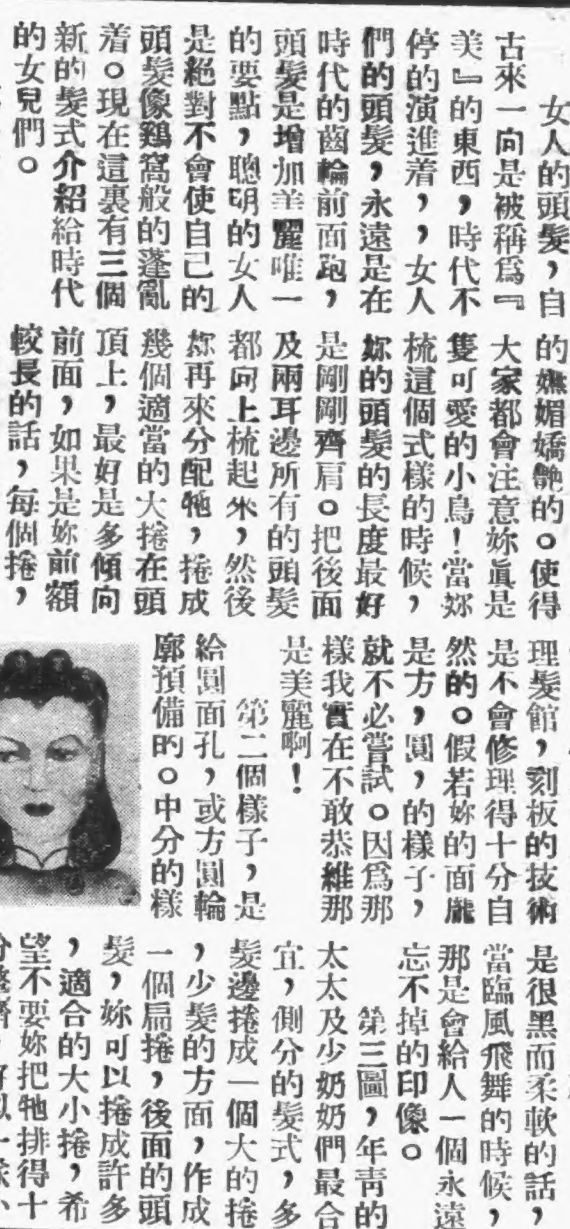 女人的頭髮，自
古來一向是被稱爲『
美』的東西，時代不
停的演進着，，女人
們的頭髮，永遠是在
時代的齒輪前面跑，
頭髮是增加美麗唯一
的要點，聰明的女人
是絕對不會使自己的
頭髮像鷄窩般的蓬亂
着。現在這裏有三個
新的髮式介紹給時代
的女兒們。
的嫵媚嬌艷的。使得
大家都會注意妳眞是
隻可愛的小鳥！當妳
梳這個式樣的時候，
妳的頭髮的長度最好
是剛剛齊肩。把後面
及兩耳邊所有的頭髮
都向上梳起來，然後
妳再來分配牠，捲成
幾個適當的大捲在頭
頂上，最好是多傾向
前面，如果是妳前額
較長的話，每個捲，
理髮館，刻板的技術
是不會修理得十分自
然的。假若妳的面龐
是方，圓，的樣子，
就不必嘗試。因爲那
樣我實在不敢恭維那
是美麗啊！
第二個樣子，是
給圓面孔，或方圓輪
廓預備的。中分的樣
是很黑而柔軟的話，
當臨風飛舞的時候，
那是會給人一個永遠
忘不掉的印像。
第三圖，年靑的
太太及少奶奶們最合
宜，側分的髮式，多
髮邊捲成一個大的捲
，少髮的方面，作成
一個扁捲，後面的頭
髮，妳可以捲成許多
，適合的大小捲，希
望不要妳把牠排得十